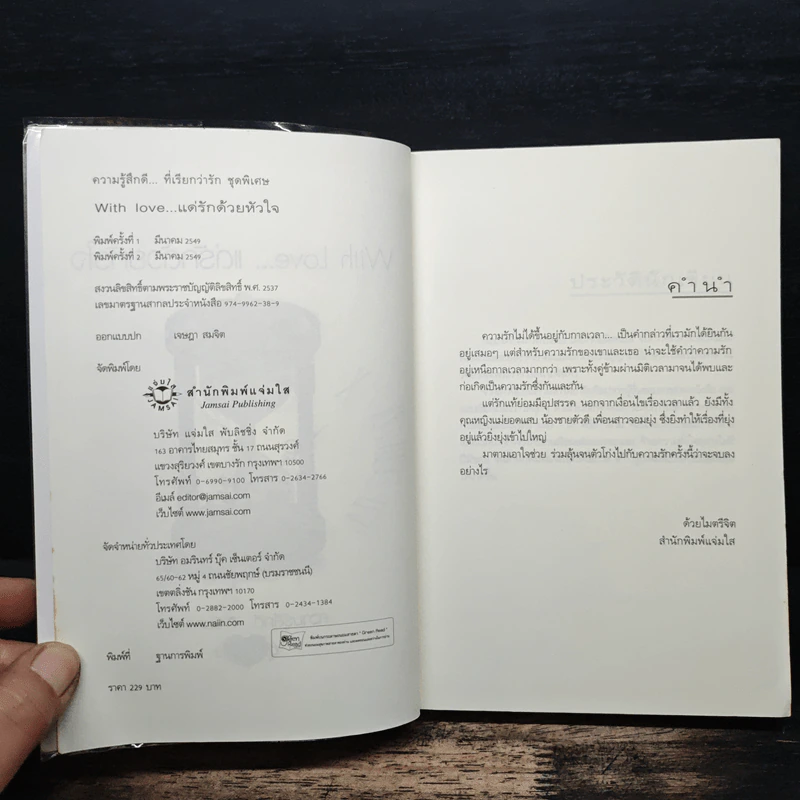 ความรู้สึกดี... ที่เรียกว่ารัก ชุดพิเศษ
With love...แด่รักด้วยหัวใจ
พิมพ์ครั้งที่ 1 มีนาคม 2549
พิมพ์ครั้งที่ 2 มีนาคม 2549
สงวนลิขสิทธิ์ตามพระราชบัญญัติลิขสิทธิ์ พ.ศ. 2537
เลขมาตรฐานสากลประจำหนังสือ 974-9962-38-9
ออกแบบปก เจษฎา สมจิต
จัดพิมพ์โดย
แจ่มใส
JAMSAI
สำนักพิมพ์แจ่มใส
Jamsai Publishing
บริษัท แจ่มใส พับลิชชิ่ง จำกัด
163 อาคารไทยสมุทร ชั้น 17 ถนนสุรวงศ์
แขวงสุริยวงศ์ เขตบางรัก กรุงเทพฯ 10500
โทรศัพท์ 0-6990-9100 โทรสาร 0-2634-2766
อีเมล์ editor@jamsai.com
เว็บไซต์ www.jamsai.com
จัดจำหน่ายทั่วประเทศโดย
บริษัท อมรินทร์ บุ๊ค เซ็นเตอร์ จำกัด
65/60-62 หมู่ 4 ถนนชัยพฤกษ์ (บรมราชชนนี)
เขตตลิ่งชัน กรุงเทพฯ 10170
โทรศัพท์ 0-2882-2000 โทรสาร 0-2434-1384
เว็บไซต์ www.naiin.com
Green Read
พิมพ์ที่ ฐานการพิมพ์
ราคา 229 บาท
คำนำ
ความรักไม่ได้ขึ้นอยู่กับกาลเวลา... เป็นคำกล่าวที่เรามักได้ยินกัน
อยู่เสมอๆ แต่สำหรับความรักของเขาและเธอ น่าจะใช้คำว่าความรัก
อยู่เหนือกาลเวลามากกว่า เพราะทั้งคู่ข้ามผ่านมิติเวลามาจนได้พบและ
ก่อเกิดเป็นความรักซึ่งกันและกัน
แต่รักแท้ย่อมมีอุปสรรค นอกจากเงื่อนไขเรื่องเวลาแล้ว ยังมีทั้ง
คุณหญิงแม่ยอดแสบ น้องชายตัวดี เพื่อนสาวจอมยุ่ง ซึ่งยิ่งทำให้เรื่องที่ยุ่ง
อยู่แล้วยิ่งยุ่งเข้าไปใหญ่
มาตามเอาใจช่วย ร่วมลุ้นจนตัวโก่งไปกับความรักครั้งนี้ว่าจะจบลง
อย่างไร
ด้วยไมตรีจิต
สำนักพิมพ์แจ่มใส